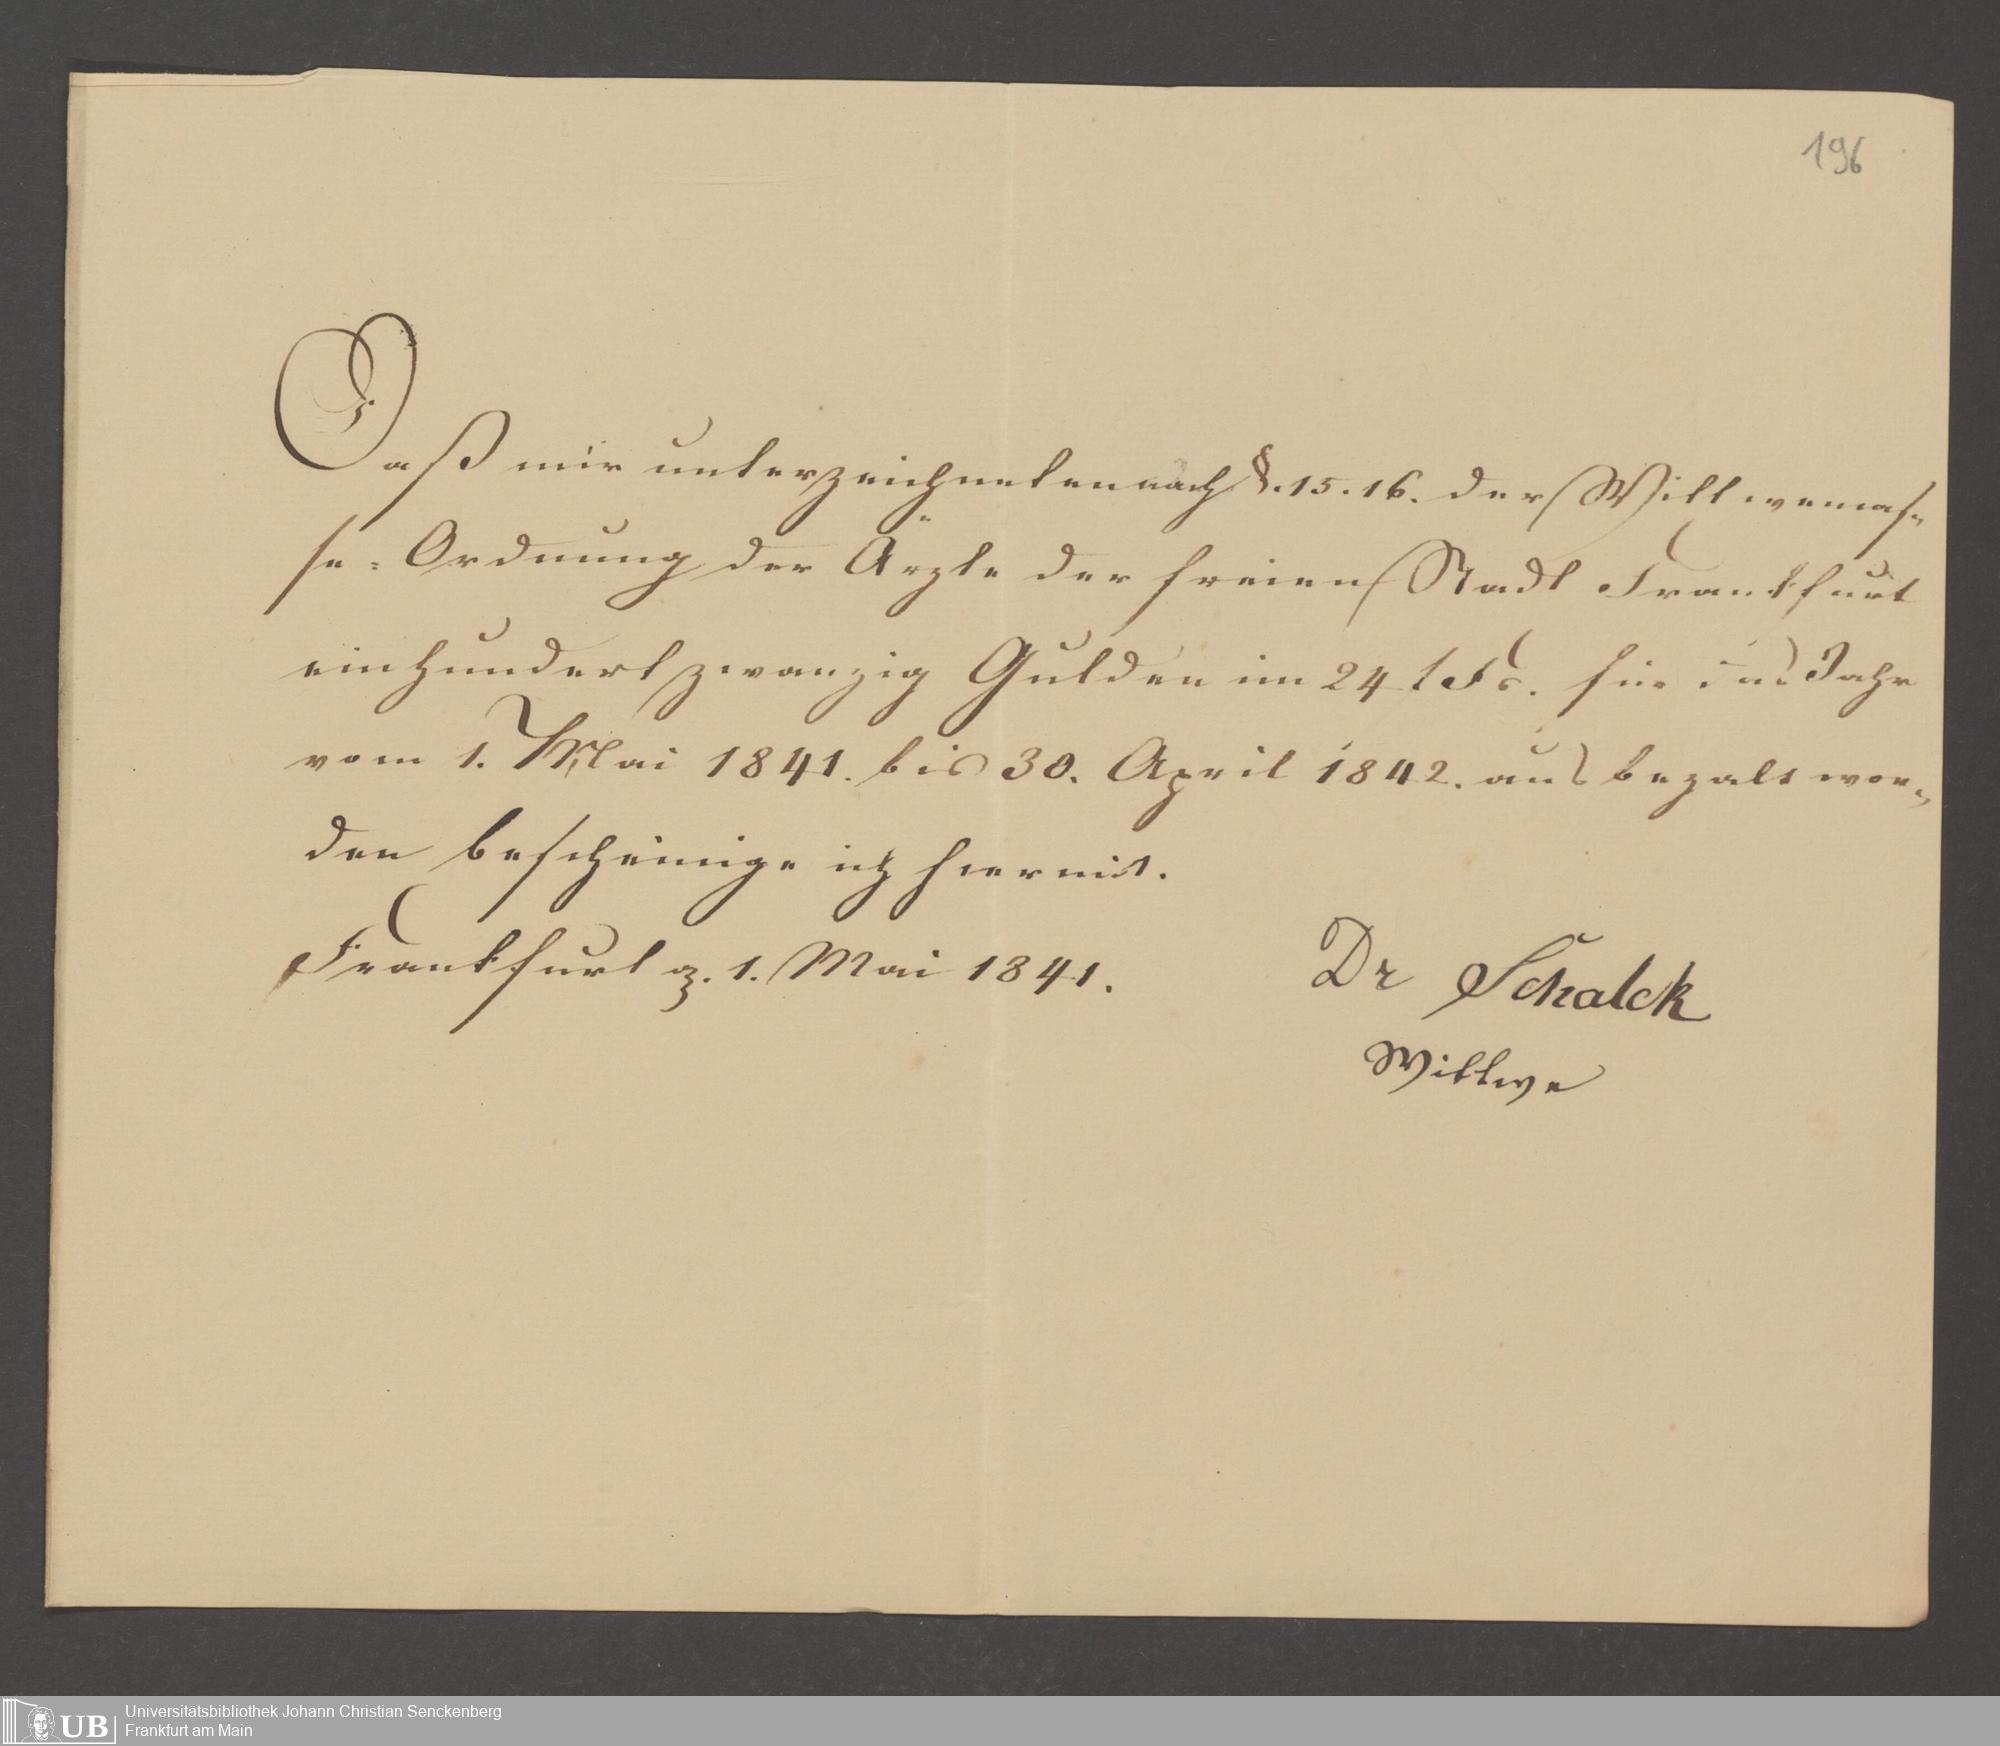 196
Daß mir unterzeichneten nach §. 15. 16. der Wittwencas-
se-Ordnung der Ärzte der freien Stadt Frankfurt
einhundertzwanzig Gulden im 24 f Fs. für das Jahr
vom 1. Mai 1841. bis 30. April 1842. ausbezalt wor-
den bescheinige ich hiermit.
Frankfurt 1. Mai 1841.
Dr Schalck
Wittwe
UB Universitätsbibliothek Johann Christian Senckenberg
Frankfurt am Main